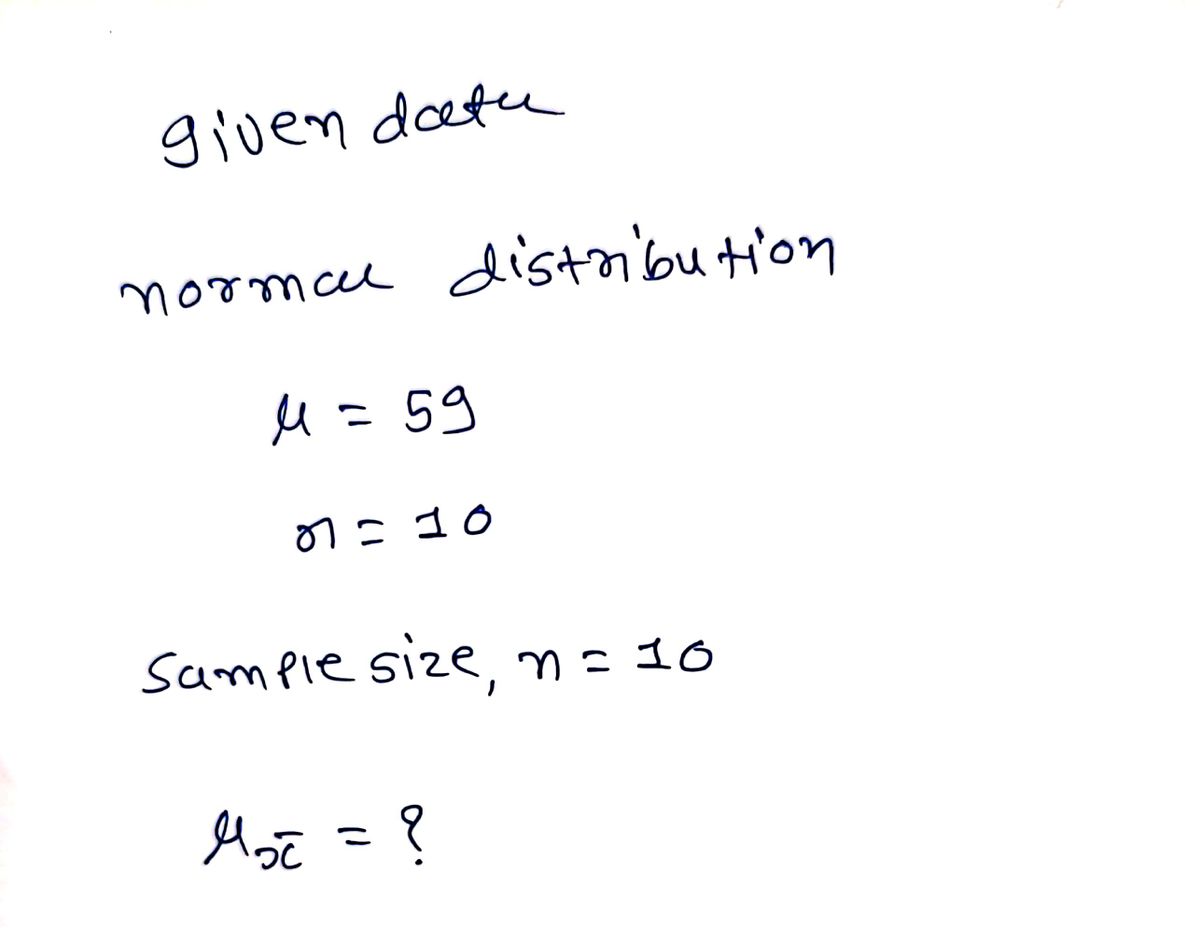 given data
normal distribution
μ = 59
n = 10
Sample size, n = 10
μx̄ = ?